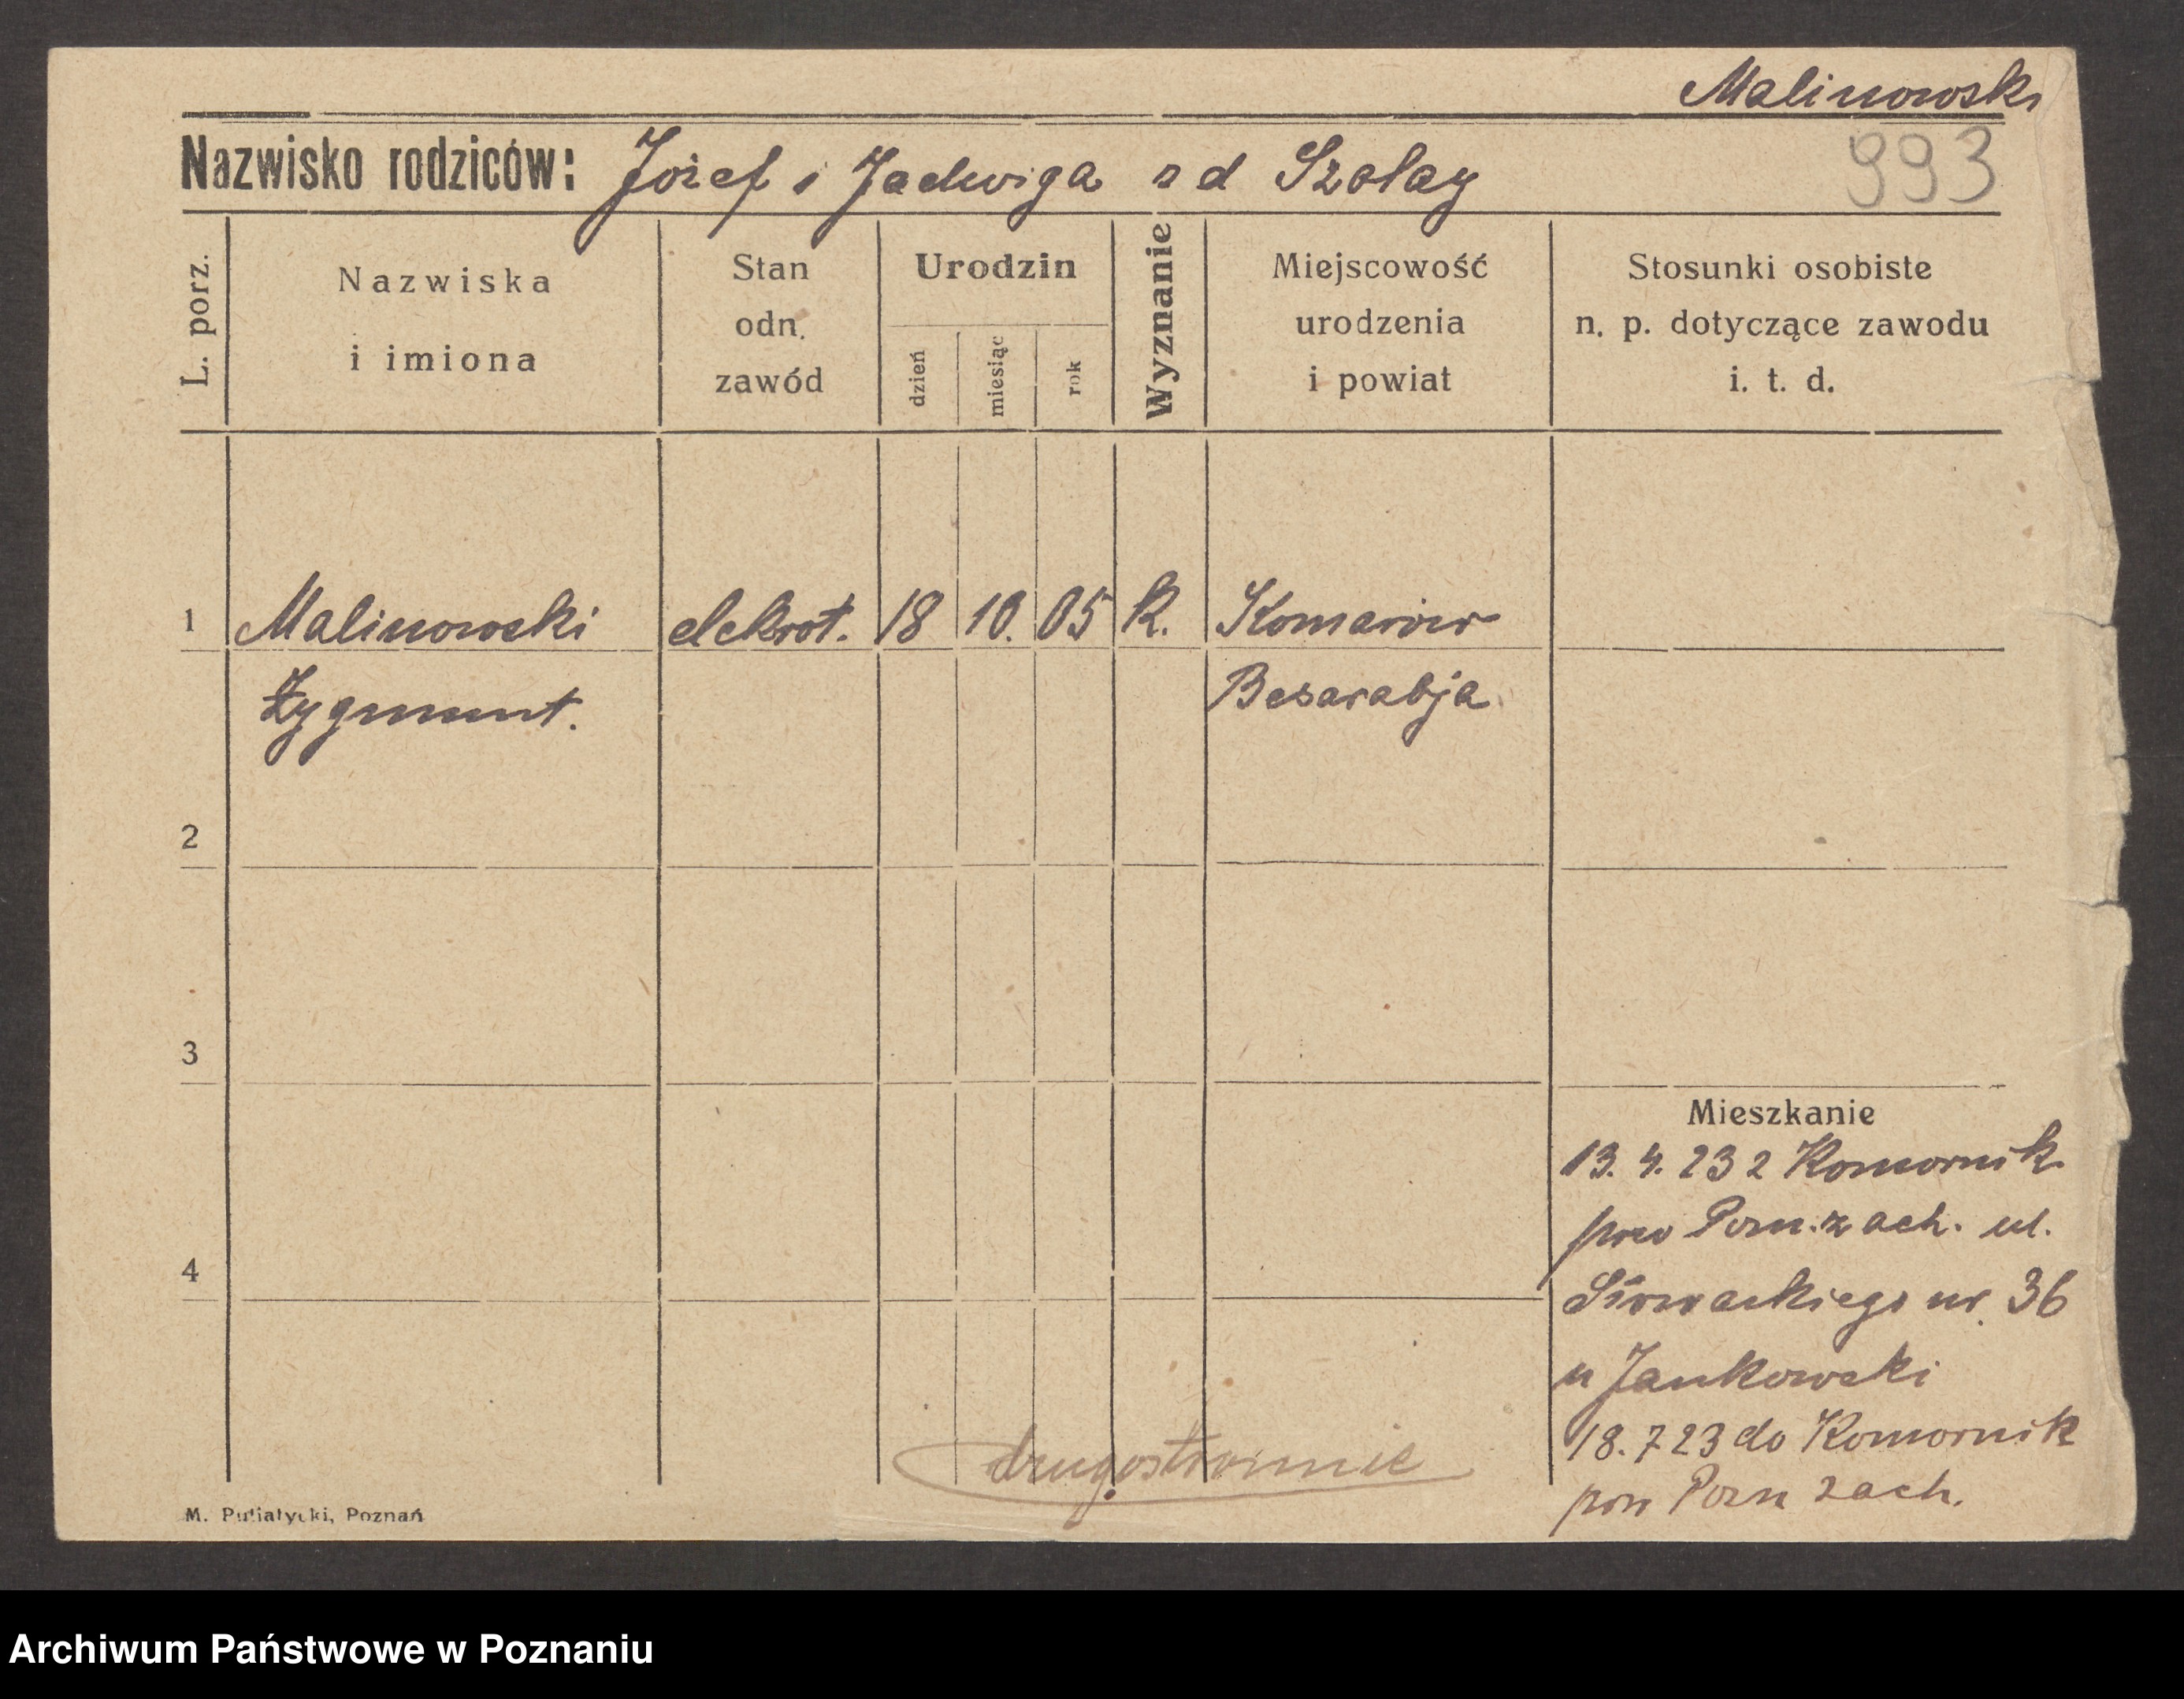 Malinowski
Nazwisko rodziców: Józef i Jadwiga z d Szalay
993
L. porz.
Nazwiska
i imiona
Stan
odn.
zawód
Urodzin
dzień
miesiąc
rok
Wyznanie
Miejscowość
urodzenia
i powiat
Stosunki osobiste
n. p. dotyczące zawodu
i. t. d.
1 Malinowski elektrot. 18 10. 05 K. Komarów
Zygmunt. Besarabja
2
3
Mieszkanie
13. 4. 23 z Komornik
pow Pozn. zach. ul.
4
Słowackiego nr. 36
u Jankowski
18. 7 23 do Komornik
pow Pozn zach.
drugostronnie
M. Putiatycki, Poznań
Archiwum Państwowe w Poznaniu